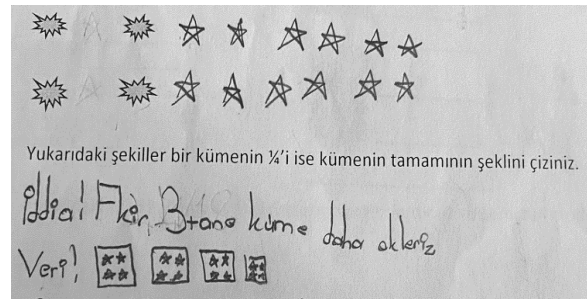 Yukarıdaki şekiller bir kümenin ¼'i ise kümenin tamamının şeklini çiziniz.
İddia! Fkir. 3 tane küme daha ekleriz
Veri!